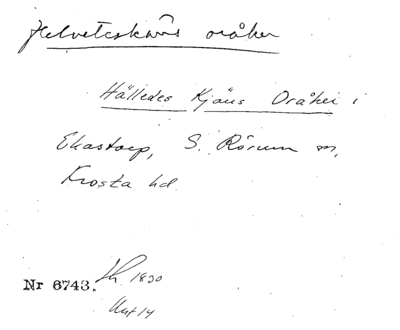 Helveteskärrs oråker
Hälledes Kjärrs Oråker i
Ekastorp, S. Rörum sn,
Frosta hd.
Nr 6743. Lh. 1830
Akt 14